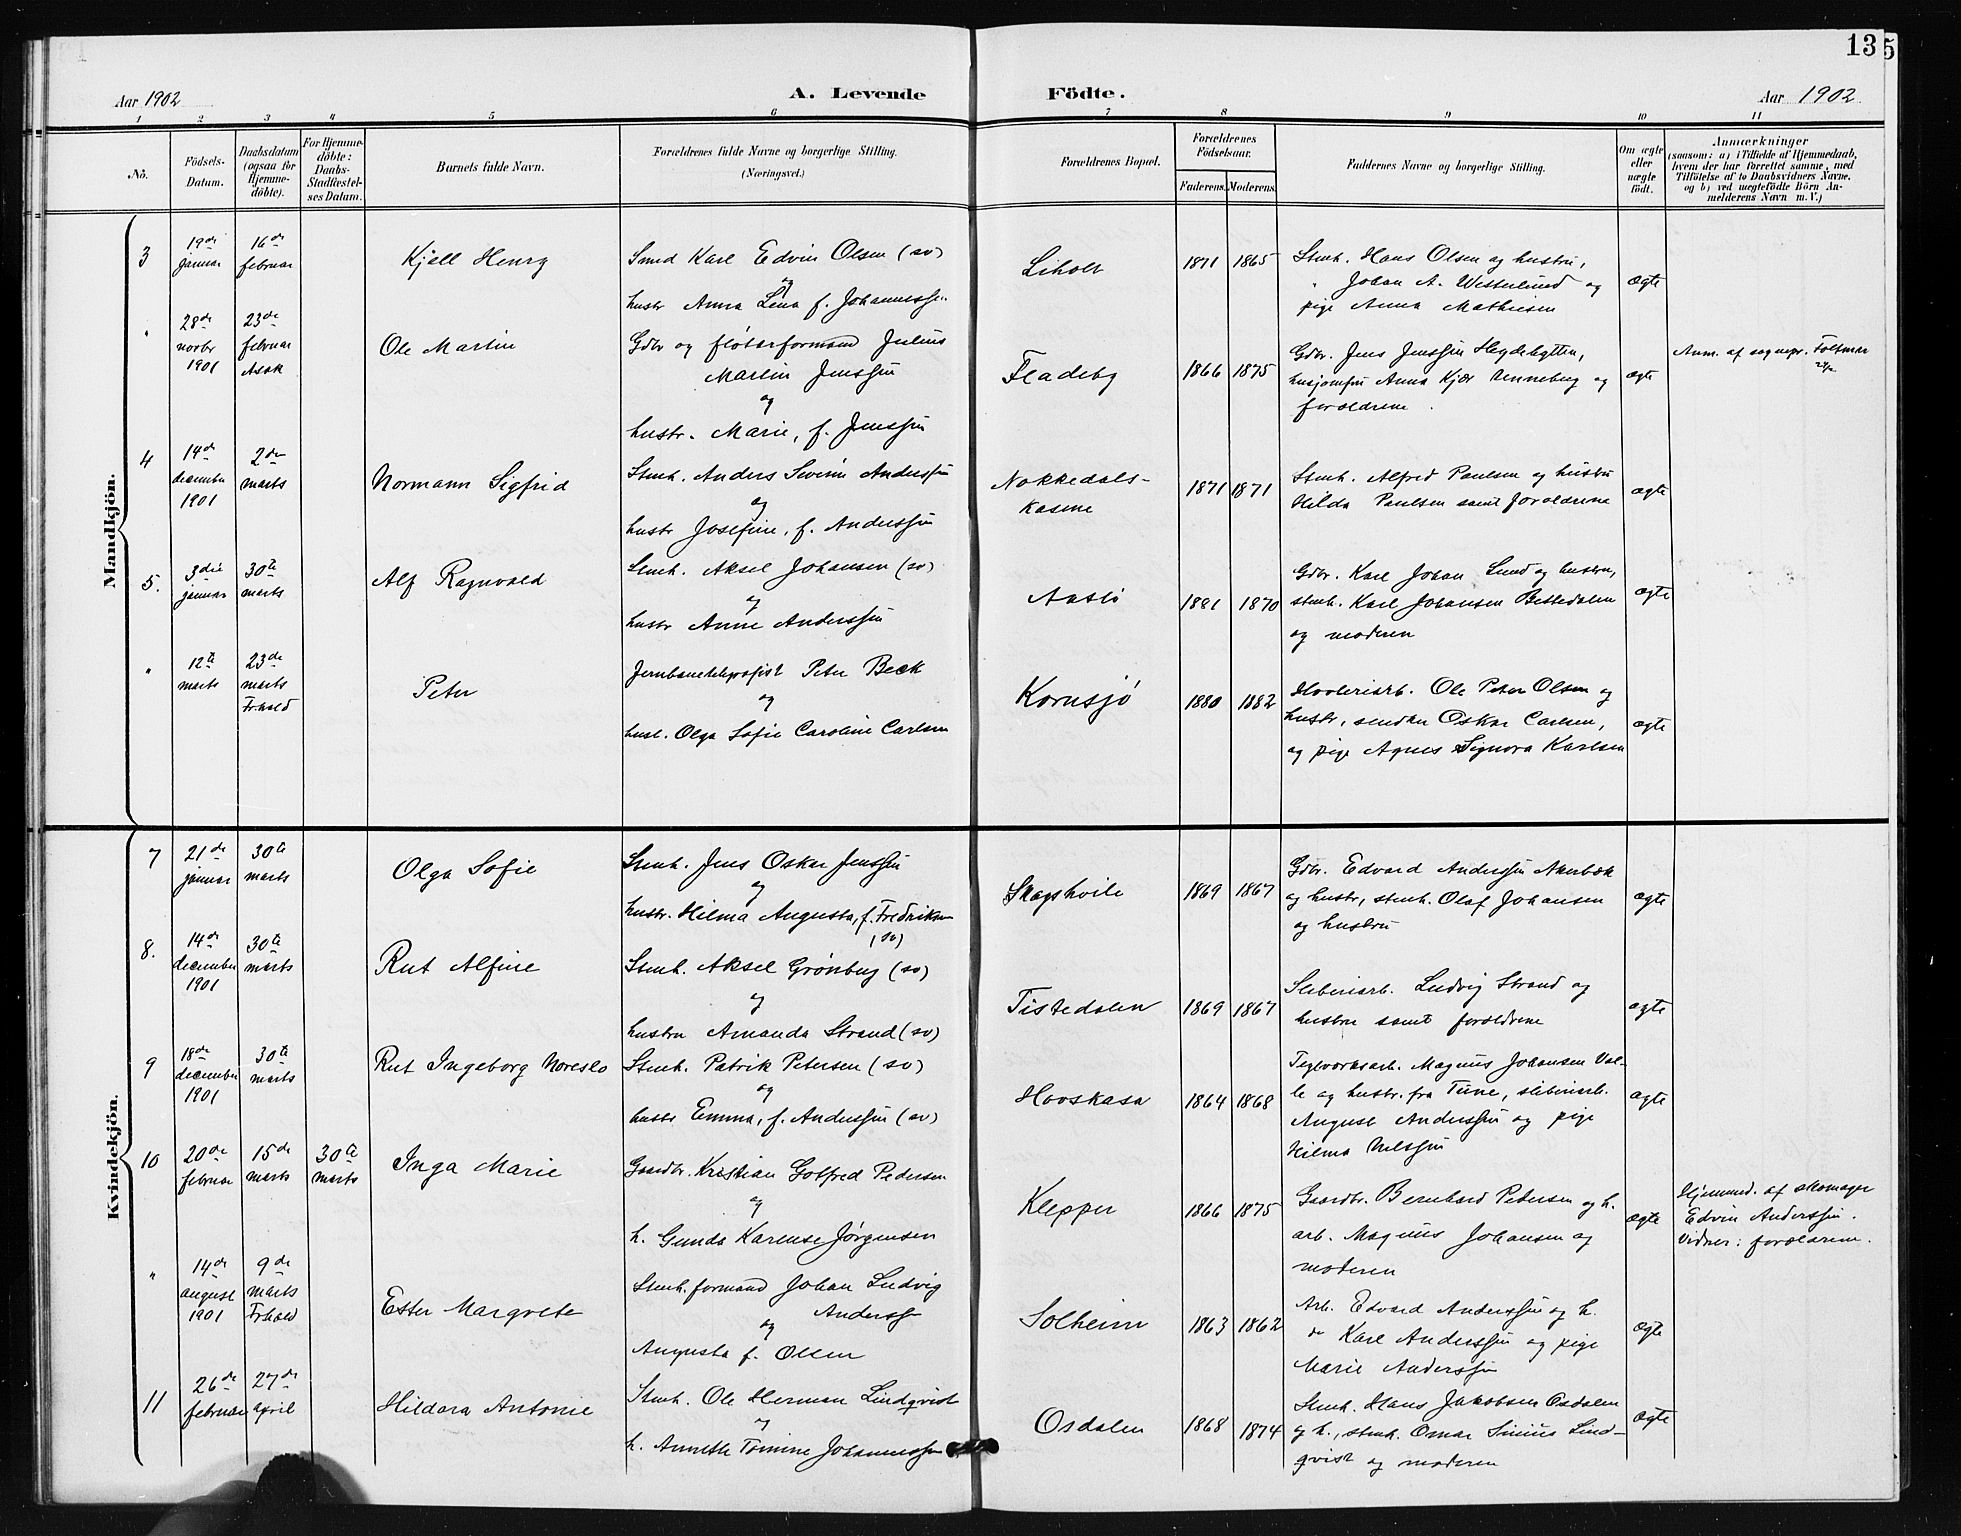 13
5
Aar 1902
A. Levende
Födte.
Aar 1902
1 2 3 4 5 6 7 8 9 10 11
No.
Födsels-
Datum.
Daabsdatum
(ogsaa for
Hjemme-
döbte).
For Hjemme-
döbte:
Daabs-
Stadfæstel-
ses Datum.
Barnets fulde Navn.
Forældrenes fulde Navne og borgerlige Stilling.
(Næringsvei.)
Forældrenes Bopæl.
Forældrenes
Födselsaar.
Faderens. Moderens.
Faddernes Navne og borgerlige Stilling.
Om ægte
eller
uægte
födt.
Anmærkninger
(saasom: a) i Tilfælde af Hjemmedaab,
hvem der har forrettet samme, med
Tilföielse af to Daabsvidners Navne,
og b) ved uegtefödte Börn An-
melderens Navn m. V.)
Mandkjön.
3
19de
januar
16de
februar
Kjell Henry
Smed Karl Edvin Olsen (sv)
og
hustr Anna Lena f. Johannessen
Liholt
1871 1865
Stenh. Hans Olsen og hustru,
" Johan A. Westerlund og
pige Anna Mathisen
ægte
"
28de
novbr
1901
23de
februar
Asak
Ole Martin
Gdbr og fløterformand Julius
Martin Jenssen
og
hustr. Marie, f. Jenssen
Fladeby
1866 1875
Gdbr. Jens Jenssen Heydebytten,
husjomfru Anna Kjær Venneberg og
forældrene.
ægte
Anm. af sognepr. Foltmar
4
14de
december
1901
2den
marts
Normann Sigfrid
Stenh. Anders Severin Anderssen
og
hustr Josefine, f. Anderssen
Nokkedals-
kasene
1871 1871
Stenh. Alfred Paulsen og hustru
Hilda Paulsen samt forældrene
ægte
5.
3die
januar
30te
marts
Alf Ragnvald
Stenh. Aksel Johansen (sv)
og
hustr Anne Anderssen
Aaslø
1881 1870
Gdbr. Karl Johan Lund og hustru,
stenh. Karl Johansen Bettedalen
og moderen
ægte
"
12te
marts
23de
marts
Fr.hald
Peter
Jernbanetelegrafist Peter Beck
og
hust. Olga Sofie Caroline Carlsen
Kornsjø
1880 1882
Høvleriarb. Ole Peter Olsen og
hustr, snedker Oskar Carlsen,
og pige Agnes Signora Karlsen
ægte
Kvindekjön.
7
21de
januar
30te
marts
Olga Sofie
Stenh. Jens Oskar Jenssen
og
hustr. Hilma Augusta, f. Fredriksen
(sv)
Skogshvile
1869 1867
Gdbr. Edvard Anderssen Akerbæk
og hustr, stenh. Olaf Johansen
og hustru
ægte
8.
14de
december
1901
30te
marts
Rut Alfine
Stenh. Aksel Grønberg (sv)
og
hustru Amanda Strand (sv)
Tistedalen
1869 1867
Sliberiarb. Ludvig Strand og
hustru samt forældrene
ægte
9
18de
december
1901
30te
marts
Rut Ingeborg Noreslo
Stenh. Patrik Petersen (sv)
og
hustr Emma, f. Anderssen (sv)
Hovskasa
1864 1868
Teglværksarb. Magnus Johansen Val-
le og hustr. fra Tune, sliberiarb.
August Anderssen og pige
Hilma Nilssen
ægte
10
20de
februar
15de
marts
30te
marts
Inga Marie
Gaardbr. Kristian Gotfred Pedersen
og
h. Gunda Karense Jørgensen
Klepper
1866 1875
Gaardbr. Bernhard Pedersen og h.
arb. Magnus Johansen og
moderen
ægte
Hjemmed. af skomager
Edvin Anderssen.
Vidner: forældrene.
"
14de
august
1901
9de
marts
Fr.hald
Ester Margrete
Stenh.formand Johan Ludvig
Anderss
og
Augusta f. Olsen
Solheim
1863 1862
Arb. Edvard Anderssen og h.
do Karl Anderssen og pige
Marie Anderssen
ægte
11
26de
februar
27de
april
Hildora Antonie
Stenh. Ole Herman Lindqvist
og
h. Annette Tomine Johannessen
Osdalen
1868 1874
Stenh. Hans Jakobsen Osdalen
og h., stenh. Omar Sinius Lind-
qvist og moderen
ægte